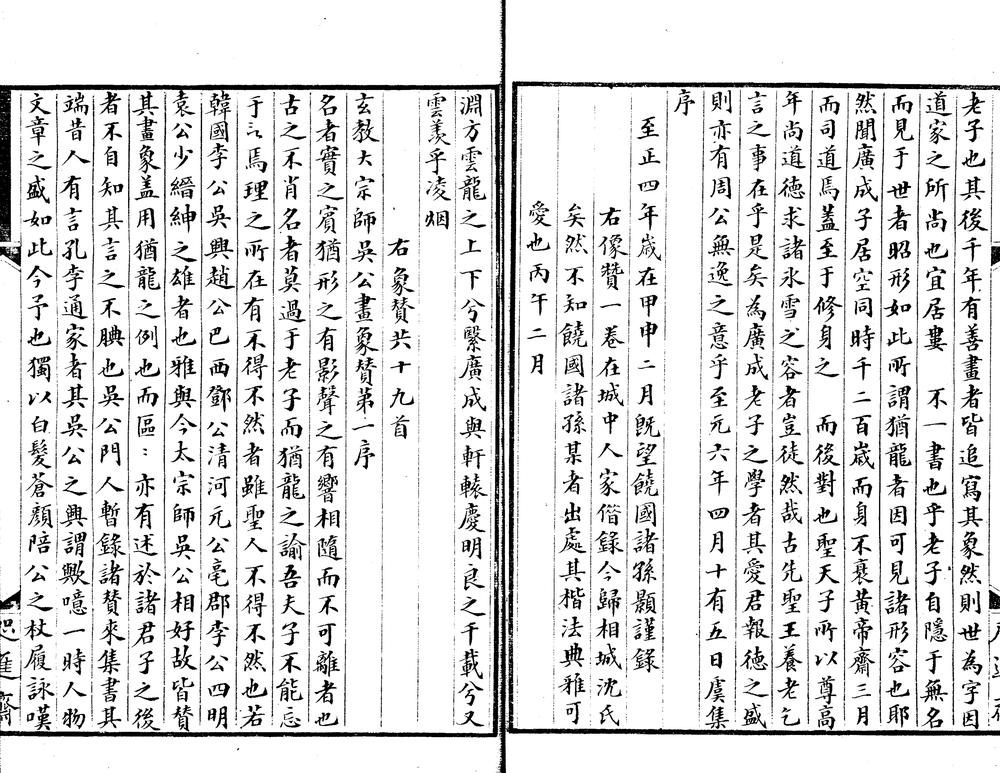 老子也其後千年有善畫者皆追寫其象然則世為字因
道家之所尚也宜居婁　不一書也乎老子自隱于無名
而見于世者昭形如此所謂猶龍者因可見諸形容也耶
然聞廣成子居空同時千二百歲而身不衰黃帝齋三月
而司道焉蓋至于修身之　而後對也聖天子所以尊高
年尚道德求諸氷雪之容者豈徒然哉古先聖王養老乞
言之事在乎是矣為廣成老子之學者其愛君報德之盛
則亦有周公無逸之意乎至元六年四月十有五日虞集
序
至正四年歲在甲申二月旣望饒國諸孫顥謹錄
右像贊一卷在城中人家偕錄今歸相城沈氏
矣然不知饒國諸孫某者出處其楷法典雅可
愛也丙午二月
淵方雲龍之上下兮繫廣成與軒轅慶明良之千載兮又
雲羨乎凌烟
右象贊共十九首
玄教大宗師吳公畫象贊第一序
名者實之賓猶形之有影聲之有響相隨而不可離者也
古之不肖名者莫過于老子而猶龍之諭吾夫子不能忘
于言焉理之所在有不得不然者雖聖人不得不然也若
韓國李公吳興趙公巴西鄧公清河元公亳郡李公四明
袁公少縉紳之雄者也雅與今太宗師吳公相好故皆贊
其畫象盖用猶龍之例也而區〻亦有述於諸君子之後
者不自知其言之不腆也吳公門人暫錄諸贊來集書其
端昔人有言孔李通家者其吳公之興謂歟噫一時人物
文章之盛如此今予也獨以白髮蒼顏陪公之杖履詠嘆